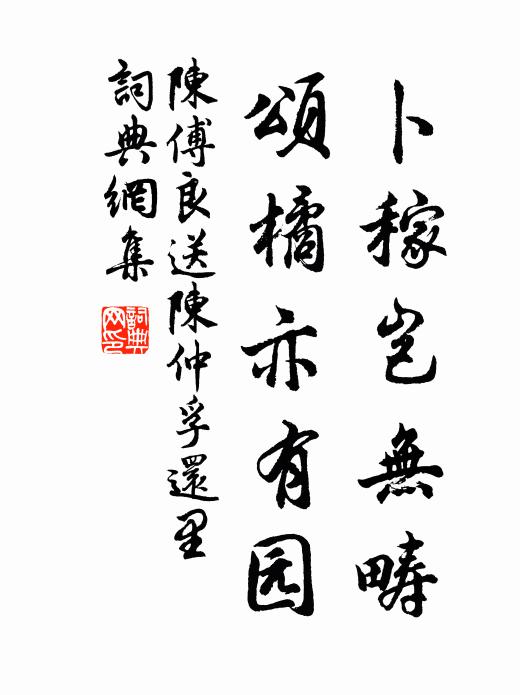 卜稼岂無疇
頌橘亦有园
陳傅良送陳仲孚還里
詞典網集
詞典网印